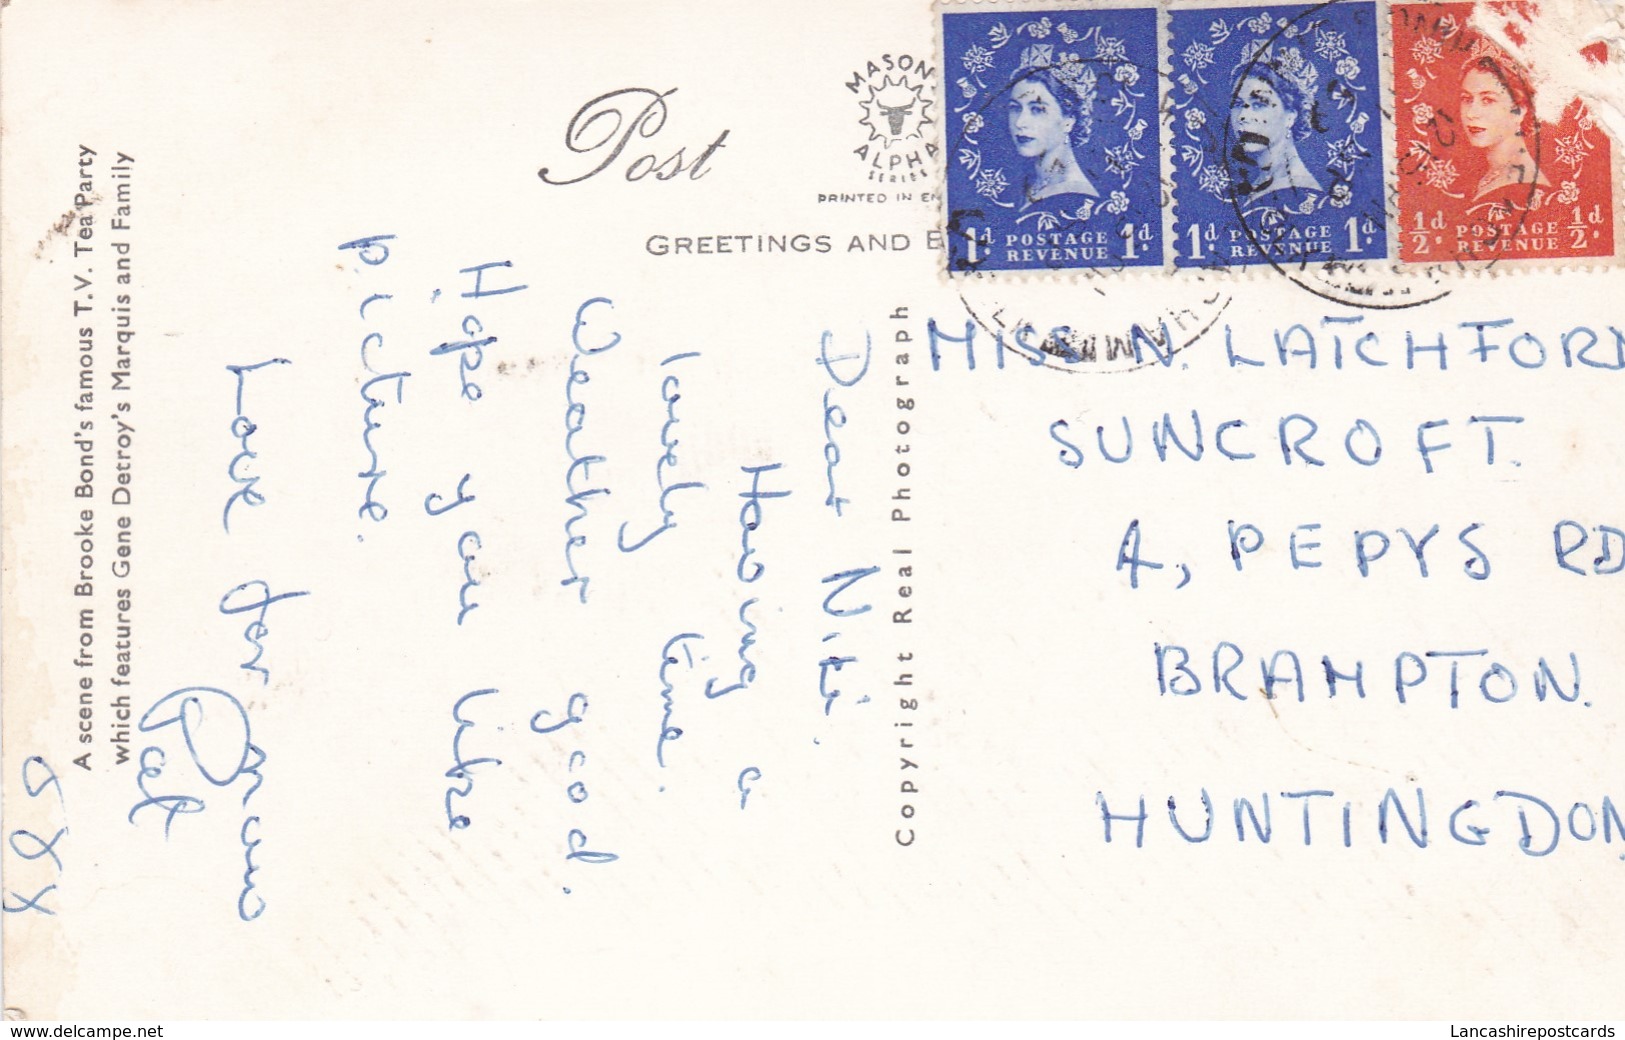 Post
MASON
ALPHA
SERIES
PRINTED IN EN
GREETINGS AND E
1d POSTAGE 1d
REVENUE
1d POSTAGE 1d
REVENUE
½d POSTAGE ½d
REVENUE
A scene from Brooke Bond's famous T.V. Tea Party
which features Gene Detroy's Marquis and Family
Copyright Real Photograph
Dear Niki.
Having a
lovely time.
Weather good.
Hope you like
picture.
Love for
Pat
MISS N. LATCHFORD
SUNCROFT.
4, PEPYS RD
BRAMPTON.
HUNTINGDON
www.delcampe.net
Lancashirepostcards